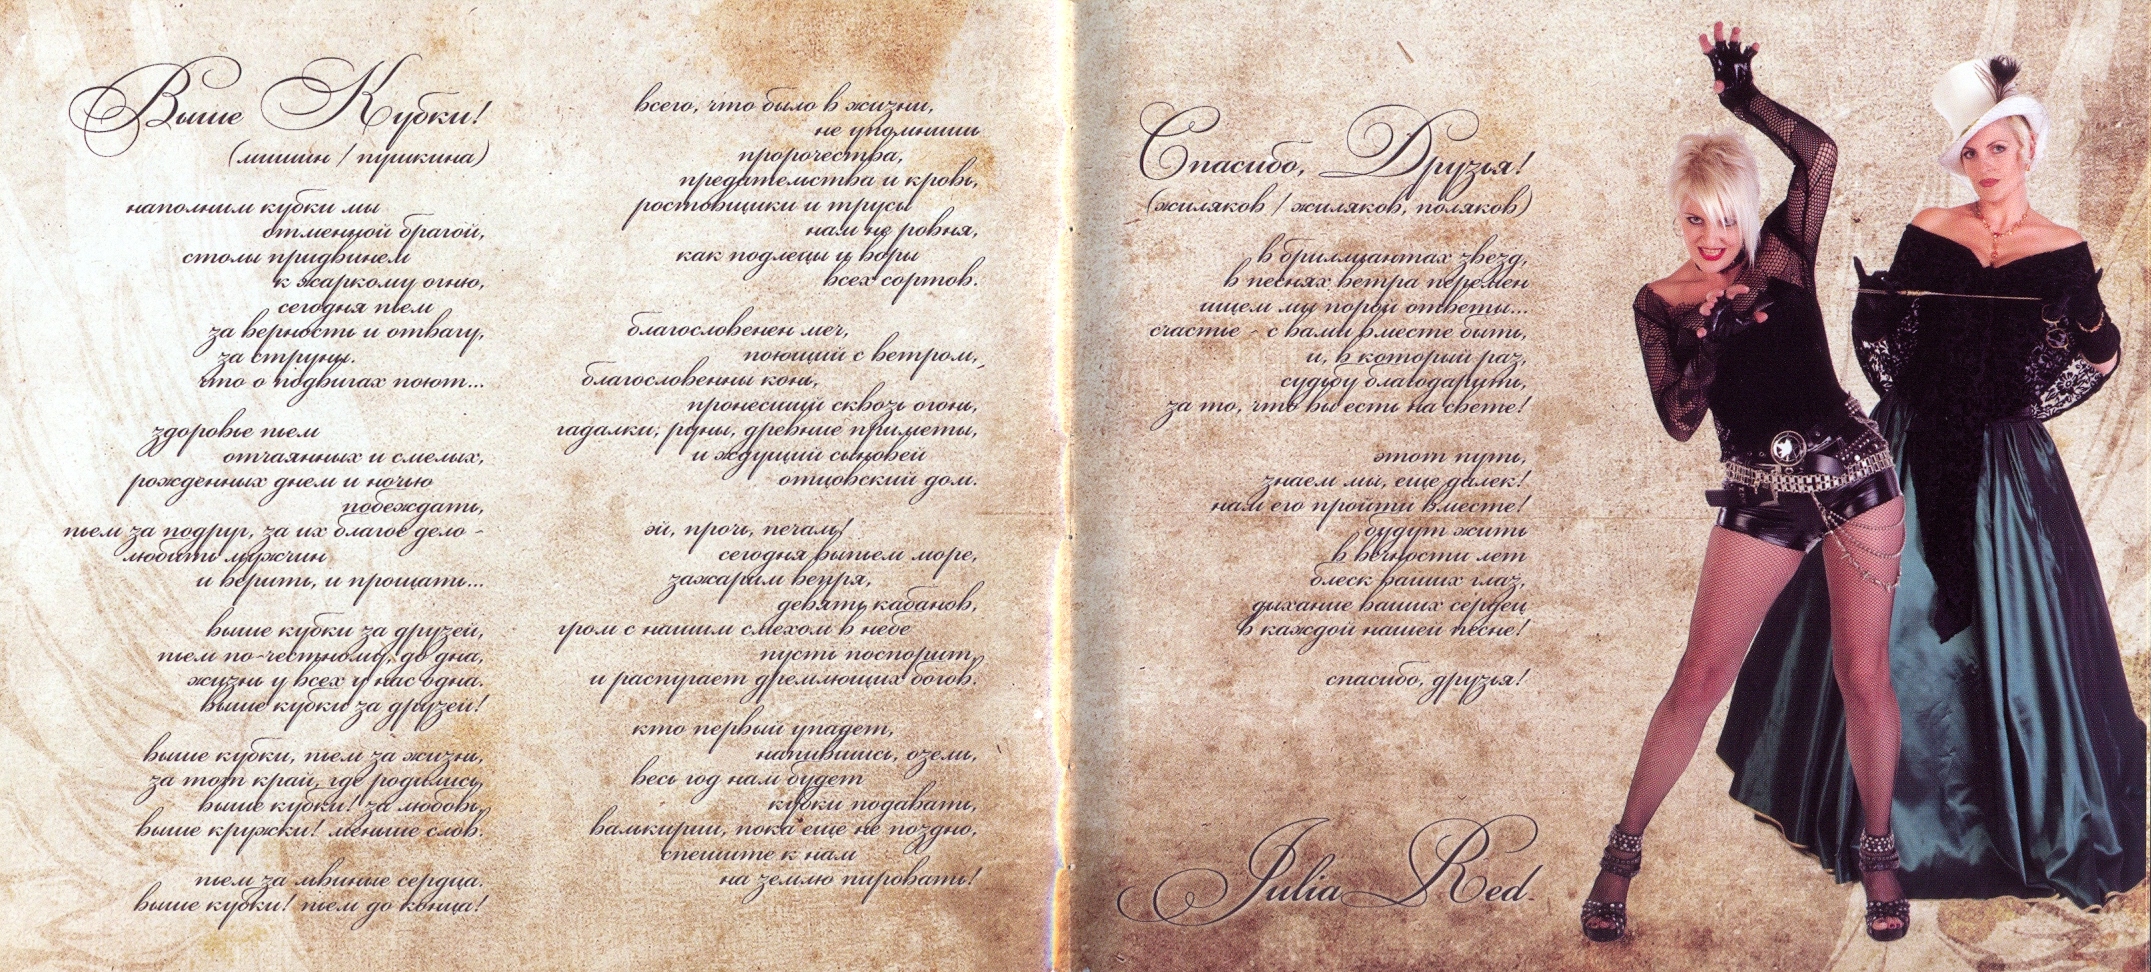 Выше Кубки!
(мишин / пушкина)
наполним кубки мы
отменной брагой,
столы придвинем
к жаркому огню,
сегодня пьем
за верность и отвагу,
за струны.
что о подвигах поют...
здоровье пьем
отчаянных и смелых,
рожденных днем и ночью
побеждать,
пьем за подруг, за их благое дело -
любить мужчин
и верить, и прощать...
выше кубки за друзей,
пьем по-честному, до дна,
жизнь у всех у нас одна.
выше кубки за друзей!
выше кубки, пьем за жизнь,
за тот край, где родились,
выше кубки! за любовь,
выше кружки! меньше слов.
пьем за львиные сердца.
выше кубки! пьем до конца!
всего, что было в жизни,
не упомнишь
пророчества,
предательства и кровь,
ростовщики и трусы
нам не ровня,
как подлецы и воры
всех сортов.
благословенен меч,
поющий с ветром,
благословенны кони,
пронесший сквозь огонь,
гадалки, руны, древние приметы,
и ждущий сыновей
отцовский дом.
эй, прочь, печаль!
сегодня выпьем море,
зажарим вепря,
девять кабанов,
гром с нашим смехом в небе
пусть поспорит,
и распугает дремлющих богов.
кто первый упадет,
напившись, оземь,
весь год нам будет
кубки подавать,
валькирии, пока еще не поздно,
спешите к нам
на землю пировать!
Спасибо, Друзья!
(жиляков / жиляков, поляков)
в бриллиантах звезд,
в песнях ветра перемен
ищем мы порой ответы...
счастье - с вами вместе быть,
и, в который раз,
судьбу благодарить,
за то, что вы есть на свете!
этот путь,
знаем мы, еще далек!
нам его пройти вместе!
будут жить
в вечности лет
блеск ваших глаз,
дыхание ваших сердец
в каждой нашей песне!
спасибо, друзья!
Julia Red.